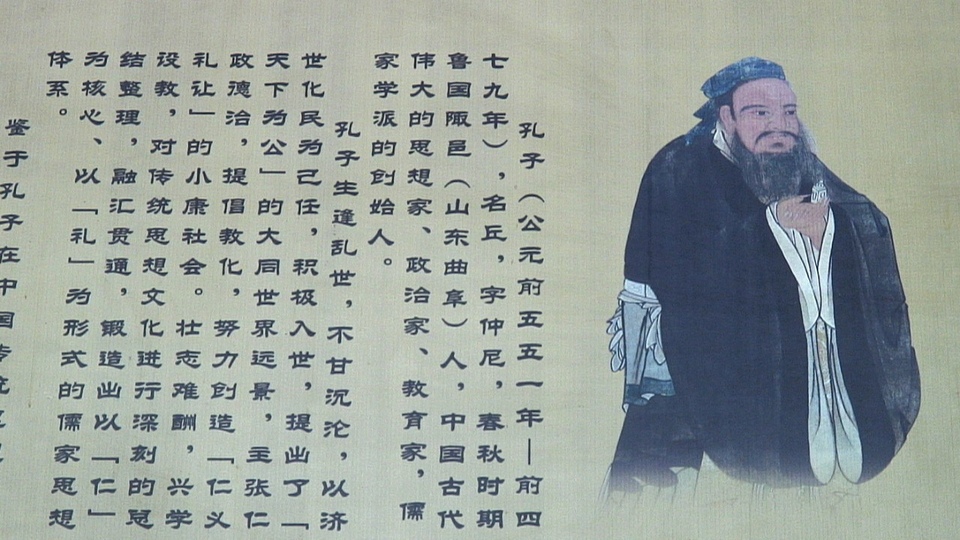 孔子（公元前五五一年—前四
七九年），名丘，字仲尼，春秋时期
鲁国陬邑（山东曲阜）人，中国古代
伟大的思想家、政治家、教育家，儒
家学派的创始人。
孔子生逢乱世，不甘沉沦，以济
世化民为己任，积极入世，提出了「
天下为公」的大同世界远景，主张仁
政德治，提倡教化，努力创造「仁义
礼让」的小康社会。壮志难酬，兴学
设教，对传统思想文化进行深刻的总
结整理，融汇贯通，锻造出以「仁」
为核心、以「礼」为形式的儒家思想
体系。
鉴于孔子在中国传统